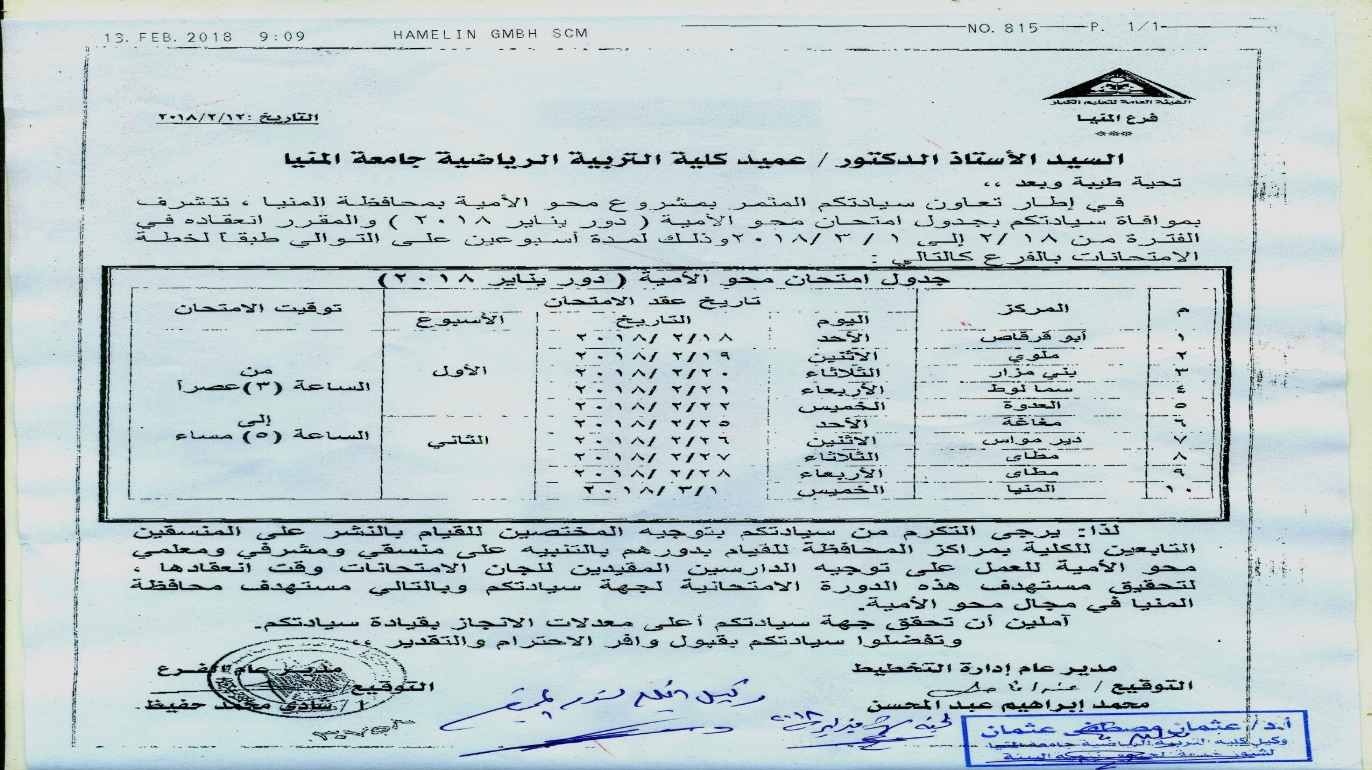 13. FEB. 2018 9:09 HAMELIN GMBH SCM NO. 815 P. 1/1
الهيئة العامة لتعليم الكبار
فرع المنيا
***
التاريخ :٢٠١٨/٢/١٢
السيد الأستاذ الدكتور / عميد كلية التربية الرياضية جامعة المنيا
تحية طيبة وبعد ،،
في إطار تعاون سيادتكم المثمر بمشروع محو الأمية بمحافظة المنيا ، نتشرف
بموافاة سيادتكم بجدول امتحان محو الأمية ( دور يناير ٢٠١٨ ) والمقرر انعقاده في
الفترة من ٢/١٨ إلى ١ / ٣ /٢٠١٨ وذلك لمدة أسبوعين على التوالي طبقا لخطة
الامتحانات بالفرع كالتالي :
جدول امتحان محو الأمية ( دور يناير ٢٠١٨ )
م المركز تاريخ عقد الامتحان توقيت الامتحان
اليوم التاريخ الأسبوع
١ أبو قرقاص الأحد ٢٠١٨/ ٢/١٨
٢ ملوي الاثنين ٢٠١٨/ ٢/١٩
٣ بني مزار الثلاثاء ٢٠١٨/ ٢/٢٠ الأول من
٤ سمالوط الأربعاء ٢٠١٨/ ٢/٢١ الساعة (٣) عصرأ
٥ العدوة الخميس ٢٠١٨/ ٢/٢٢
٦ مغاغة الأحد ٢٠١٨/ ٢/٢٥ إلى
٧ دير مواس الاثنين ٢٠١٨/ ٢/٢٦ الثاني الساعة (٥) مساء
٨ مطاى الثلاثاء ٢٠١٨/ ٢/٢٧
٩ مطاى الأربعاء ٢٠١٨/ ٢/٢٨
١٠ المنيا الخميس ٢٠١٨/٣/١
لذا: يرجى التكرم من سيادتكم بتوجيه المختصين للقيام بالنشر على المنسقين
التابعين للكلية بمراكز المحافظة للقيام بدورهم بالتنبيه على منسقي ومشرفي ومعلمي
محو الأمية للعمل على توجيه الدارسين المقيدين للجان الامتحانات وقت انعقادها ،
لتحقيق مستهدف هذه الدورة الامتحانية لجهة سيادتكم وبالتالي مستهدف محافظة
المنيا في مجال محو الأمية.
آملين أن تحقق جهة سيادتكم أعلى معدلات الانجاز بقيادة سيادتكم.
وتفضلوا سيادتكم بقبول وافر الاحترام والتقدير ،،
مدير عام إدارة التخطيط
التوقيع /
محمد إبراهيم عبد المحسن
مدير عام الفرع
التوقيع
أ / شادي محمد حفيظ.
أ.د/ عثمان مصطفى عثمان
وكيل كلية التربية الرياضية جامعة المنيا
لشئون خدمة المجتمع وتنمية البيئة